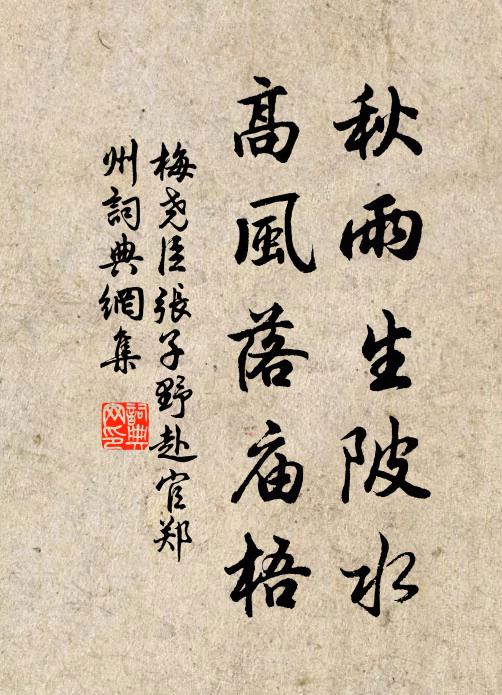 秋雨生陂水
高風落庙梧
梅尧臣張子野赴官郑
州詞典網集
詞典网印